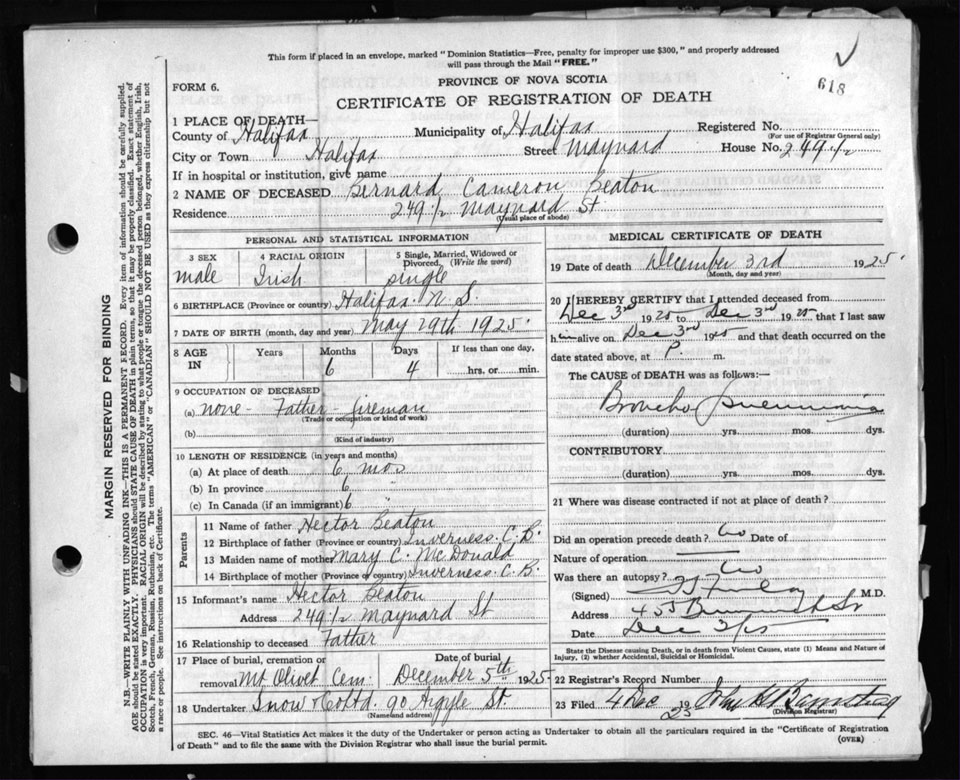 This form if placed in an envelope, marked "Dominion Statistics—Free, penalty for improper use $300," and properly addressed
will pass through the Mail "FREE."
618
FORM 6.
PROVINCE OF NOVA SCOTIA
CERTIFICATE OF REGISTRATION OF DEATH
1 PLACE OF DEATH—
County of Halifax Municipality of Halifax Registered No.
(For use of Registrar General only)
City or Town Halifax Street Maynard House No. 249 1/2
If in hospital or institution, give name
2 NAME OF DECEASED Bernard Cameron Beaton
Residence 249 1/2 Maynard St
(Usual place of abode)
PERSONAL AND STATISTICAL INFORMATION
3 SEX 4 RACIAL ORIGIN 5 Single, Married, Widowed or
Divorced. (Write the word)
male Irish single
6 BIRTHPLACE (Province or country) Halifax. N.S.
7 DATE OF BIRTH (month, day and year) May 29th 1925.
8 AGE IN Years Months Days If less than one day,
6 4 hrs. or min.
9 OCCUPATION OF DECEASED
(a) none - Father - fireman
(Trade or occupation or kind of work)
(b)
(Kind of industry)
10 LENGTH OF RESIDENCE (in years and months)
(a) At place of death 6 mos
(b) In province 6 "
(c) In Canada (if an immigrant) 6 "
Parents
11 Name of father Hector Beaton
12 Birthplace of father (Province or country) Inverness. C.B.
13 Maiden name of mother Mary C. McDonald
14 Birthplace of mother (Province or country) Inverness. C.B.
15 Informant's name Hector Beaton
Address 249 1/2 Maynard St
16 Relationship to deceased Father
17 Place of burial, cremation or Date of burial
removal Mt Olivet Cem. December 5th 1925
18 Undertaker Snow & Co Ltd. 90 Argyle St.
(Name and address)
MEDICAL CERTIFICATE OF DEATH
19 Date of death December 3rd 1925.
(Month, day and year)
20 I HEREBY CERTIFY that I attended deceased from
Dec 3rd 1925 to Dec 3rd 1925 that I last saw
him alive on Dec 3rd 1925 and that death occurred on the
date stated above, at P. m.
The CAUSE of DEATH was as follows:—
Broncho pneumonia
(duration) yrs. mos. dys.
CONTRIBUTORY
(duration) yrs. mos. dys.
21 Where was disease contracted if not at place of death?
Did an operation precede death? No Date of
Nature of operation
Was there an autopsy? No
(Signed) M.D.
Address 455
Date Dec 3/25
State the Disease causing Death, or in death from Violent Causes, state (1) Means and Nature of
Injury, (2) whether Accidental, Suicidal or Homicidal.
22 Registrar's Record Number
23 Filed 4 Dec 1925 John
(Division Registrar)
SEC. 46—Vital Statistics Act makes it the duty of the Undertaker or person acting as Undertaker to obtain all the particulars required in the "Certificate of Registration
of Death" and to file the same with the Division Registrar who shall issue the burial permit.
(OVER)
MARGIN RESERVED FOR BINDING
N.B.—WRITE PLAINLY WITH UNFADING INK—THIS IS A PERMANENT RECORD. Every item of information should be carefully supplied.
AGE should be stated EXACTLY. PHYSICIANS should STATE CAUSE OF DEATH in plain terms, so that it may be properly classified. Exact statement of
OCCUPATION is very important. RACIAL ORIGIN will be described by stating to what people or tongue the deceased person belonged, whether English, Irish,
Scotch, French, German, Russian, Ruthenian, etc. The terms "AMERICAN" or "CANADIAN" SHOULD NOT BE USED as they express citizenship but not
a race or people. See instructions on back of Certificate.